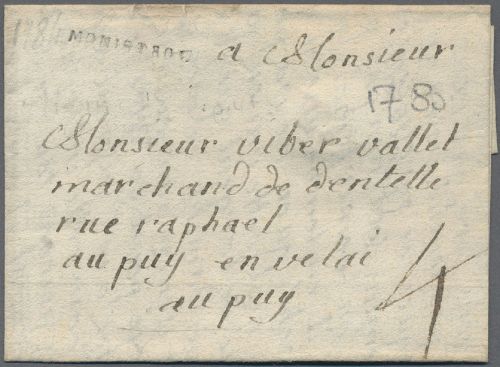 MONISTROL
a Monsieur
1780
Monsieur viber vallet
marchand de dentelle
rue raphael
au puy en velai
au puy
4